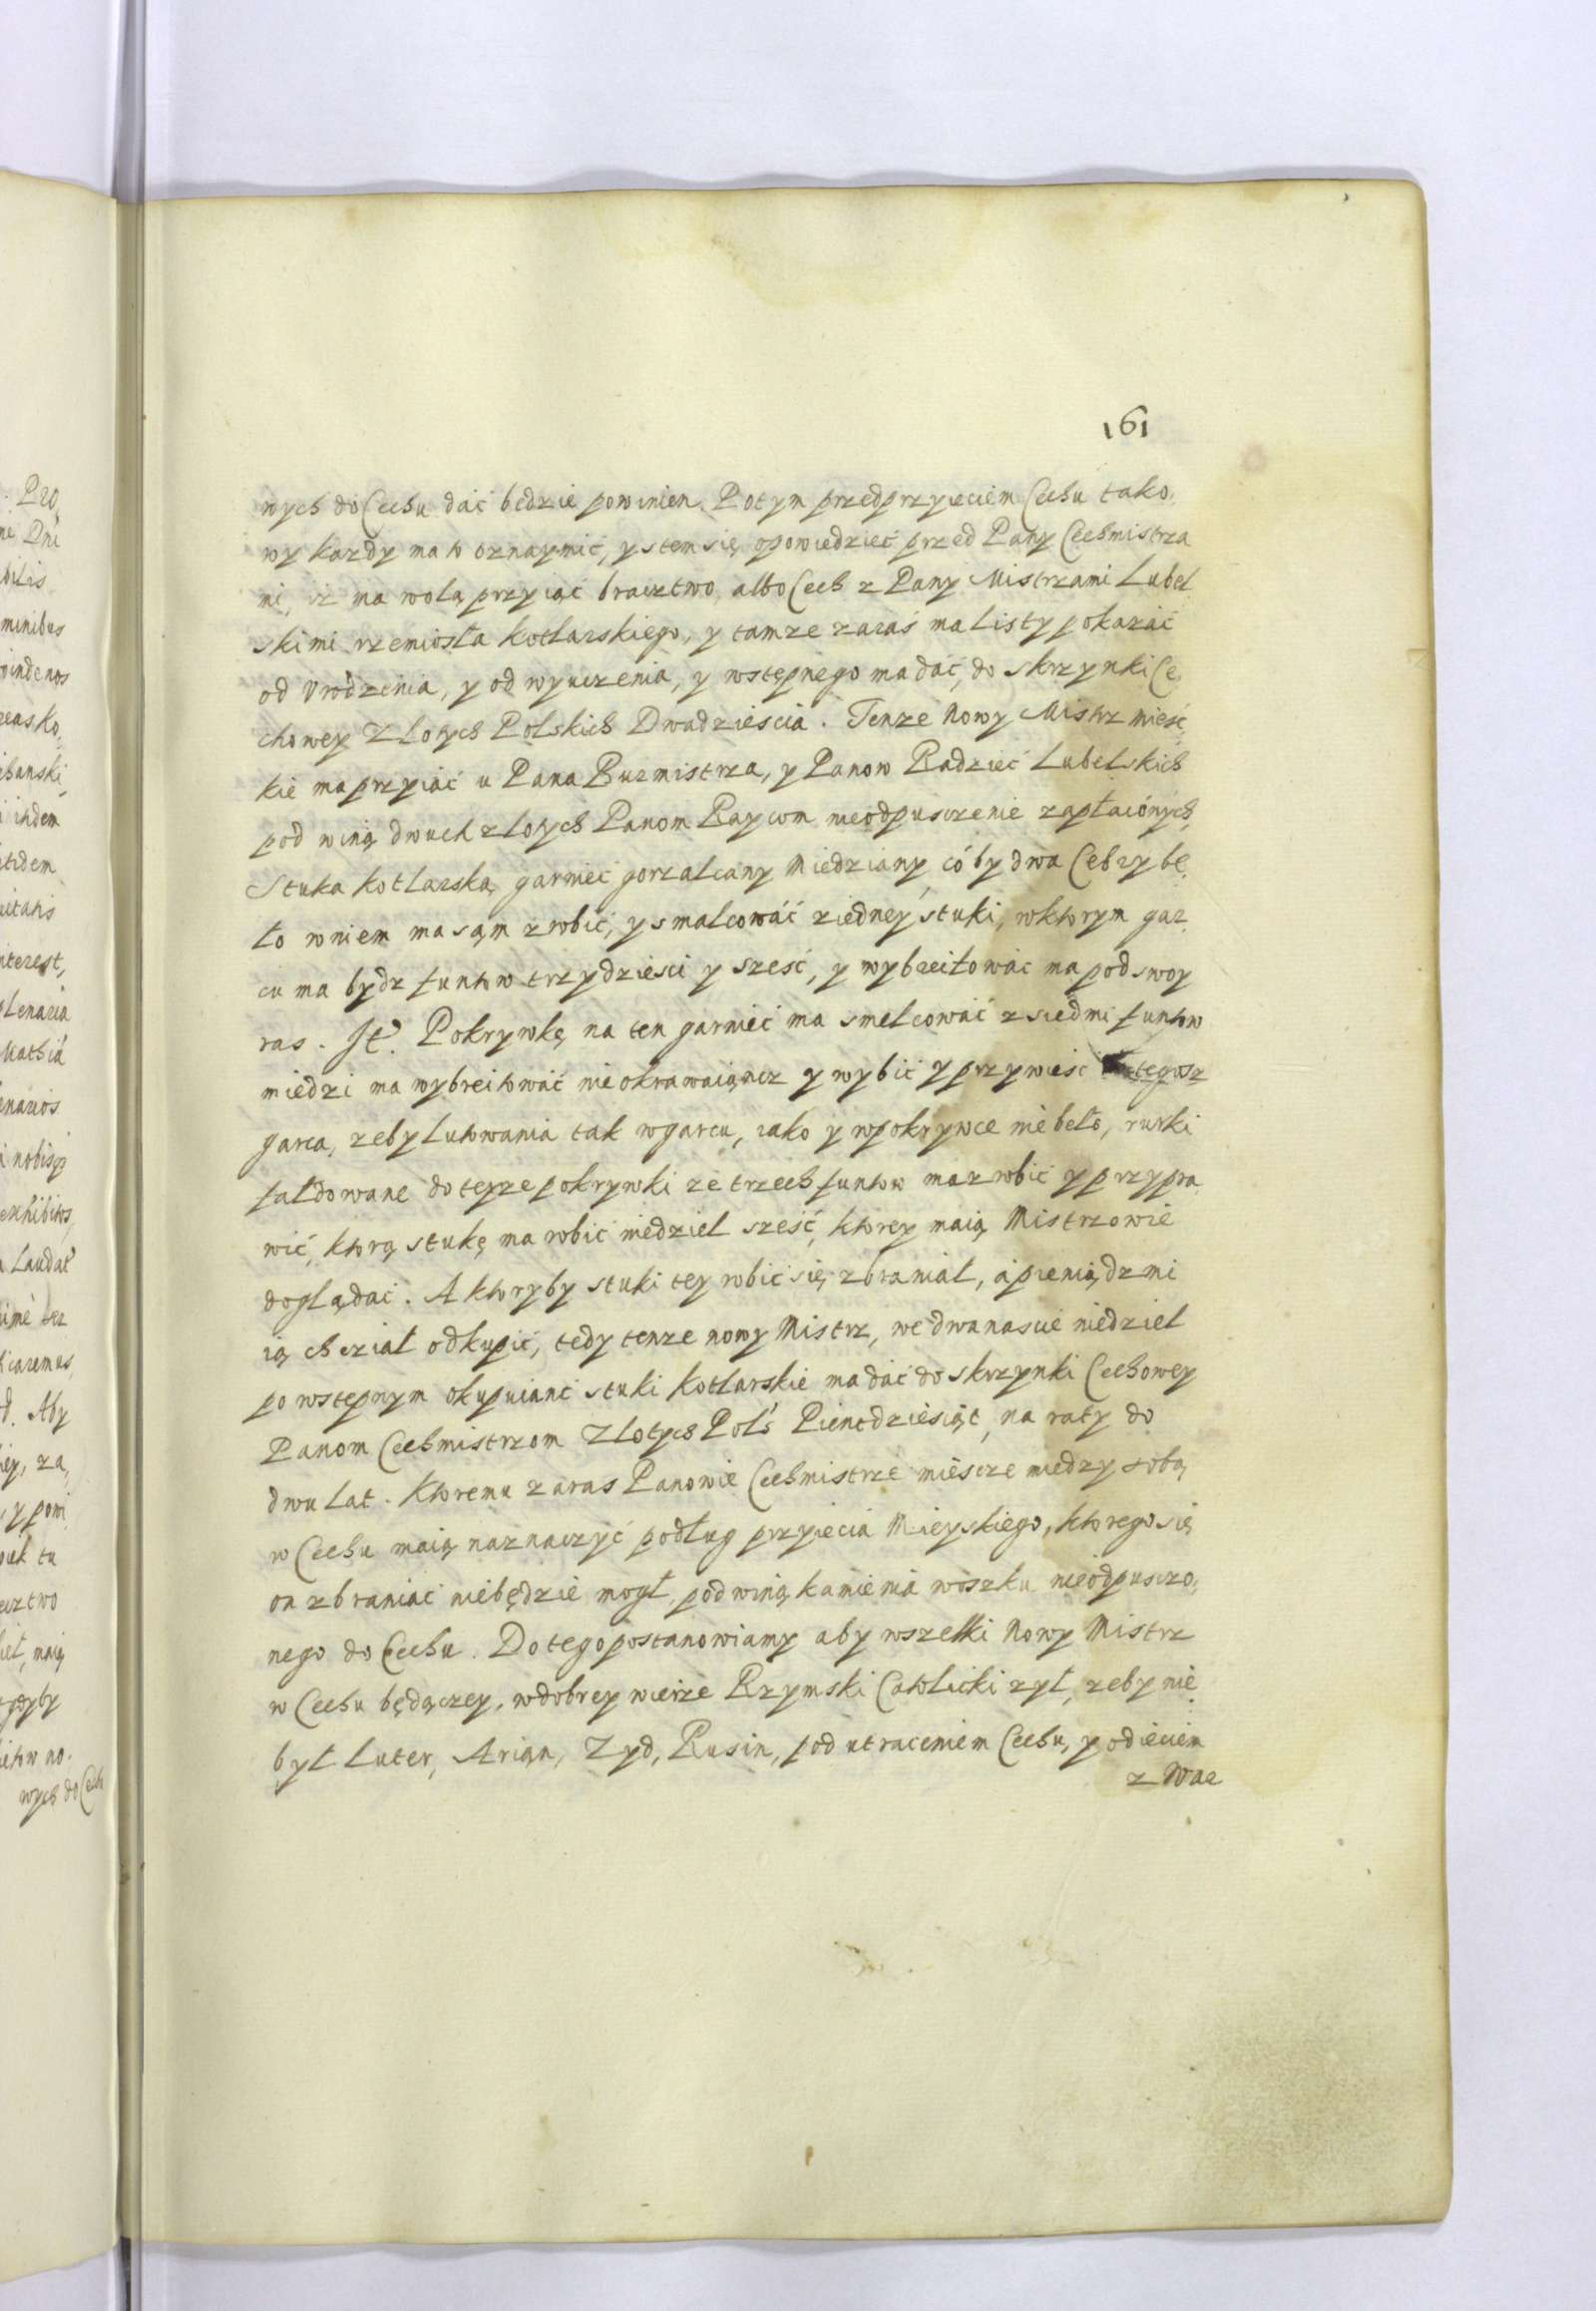 161
wych do Cechu dać będzie powinien. Potym przed przyięciem Cechu tako,
wy kazdy ma to oznaymić, y stem się opowiedzieć przed Pany Cechmistrza
mi, iz ma wolą przyiąć bractwo, albo Cech z Pany Mistrzami Lubel
skimi rzemiosła kotlarskiego, y tamze zaraś ma Listy pokazać
od Vrodzenia, y od wyuczenia, y wstępnego ma dać, do skrzynki Ce,
chowey Złotych Polskich Dwadzieścia. Tenze Nowy Mistrz mieść,
kie ma przyiać u Pana Burmistrza, y Panow Radziec Lubelskich
pod winą dwuch złotych Panom Raycom nieodpusczenie zapłaciónych,
Stuka kotlarska, garniec gorzalczany Miedziany có by dwa Cebry bę,
ło wniem ma sąm zrobić, y smalcowáć ziedney stuki, wktorym gar,
cu ma bydz funtow trzydzieści y sześć, y wybreitować ma pod swoy
ras. It. Pokrywkę na ten garniec ma smelcować z siedmi funtow
miedzi ma wybreitować nie okrawaiąncz y wybić y przywieść tegosz
garca, zeby Lutowania tak wgarcu, iako y wpokrywce nie beło, rurki
fałdowane do teyze pokrywki ze trzech funtow ma zrobić y przypra,
wić, ktorą stukę ma robić niedziel sześć, ktorey maią Mistrzowie
doglądać. A ktoryby stuki tey robić się zbraniał, á pieniądzmi
ią chciał odkupić, tedy tenze nowy Mistrz, we dwanaście niedziel
po wstępnym okupuianc stuki kotlarskie ma dać do skrzynki Cechowey
Panom Cechmistrzom Złotych Pols Pienćdziesiąt, na raty do
dwu lat. Ktoremu zaras Panowie Cechmistrze miescze miedzy sobą
w Cechu maią naznaczyć podług przyiecia Mieyskiego, ktorego się
on zbraniać niebędzie mogł, pod winą kamienia woszku nieodpusczo,
nego do Cechu. Do tego postanowiamy aby wszelki Nowy Mistrz
w Cechu będączey, wdobrey wierze Rzymski Catolicki zył, zeby nie
był Luter, Arian, Zyd, Rusin, pod utraceniem Cechu, y odięciem
z War
Pro,
ne Dni
bilis
minibus
oinde nos
reas ko,
ibanski,
indem
itidem
uitatis
nterest,
plenaria
Mathia
enarios
nobisq
exhibitos,
Laudat
ime ter
caremus,
d. Aby
iey, za,
y powi
uk tu
cztwo
iel, maią
gdyby
ietow no.
wych do Cech